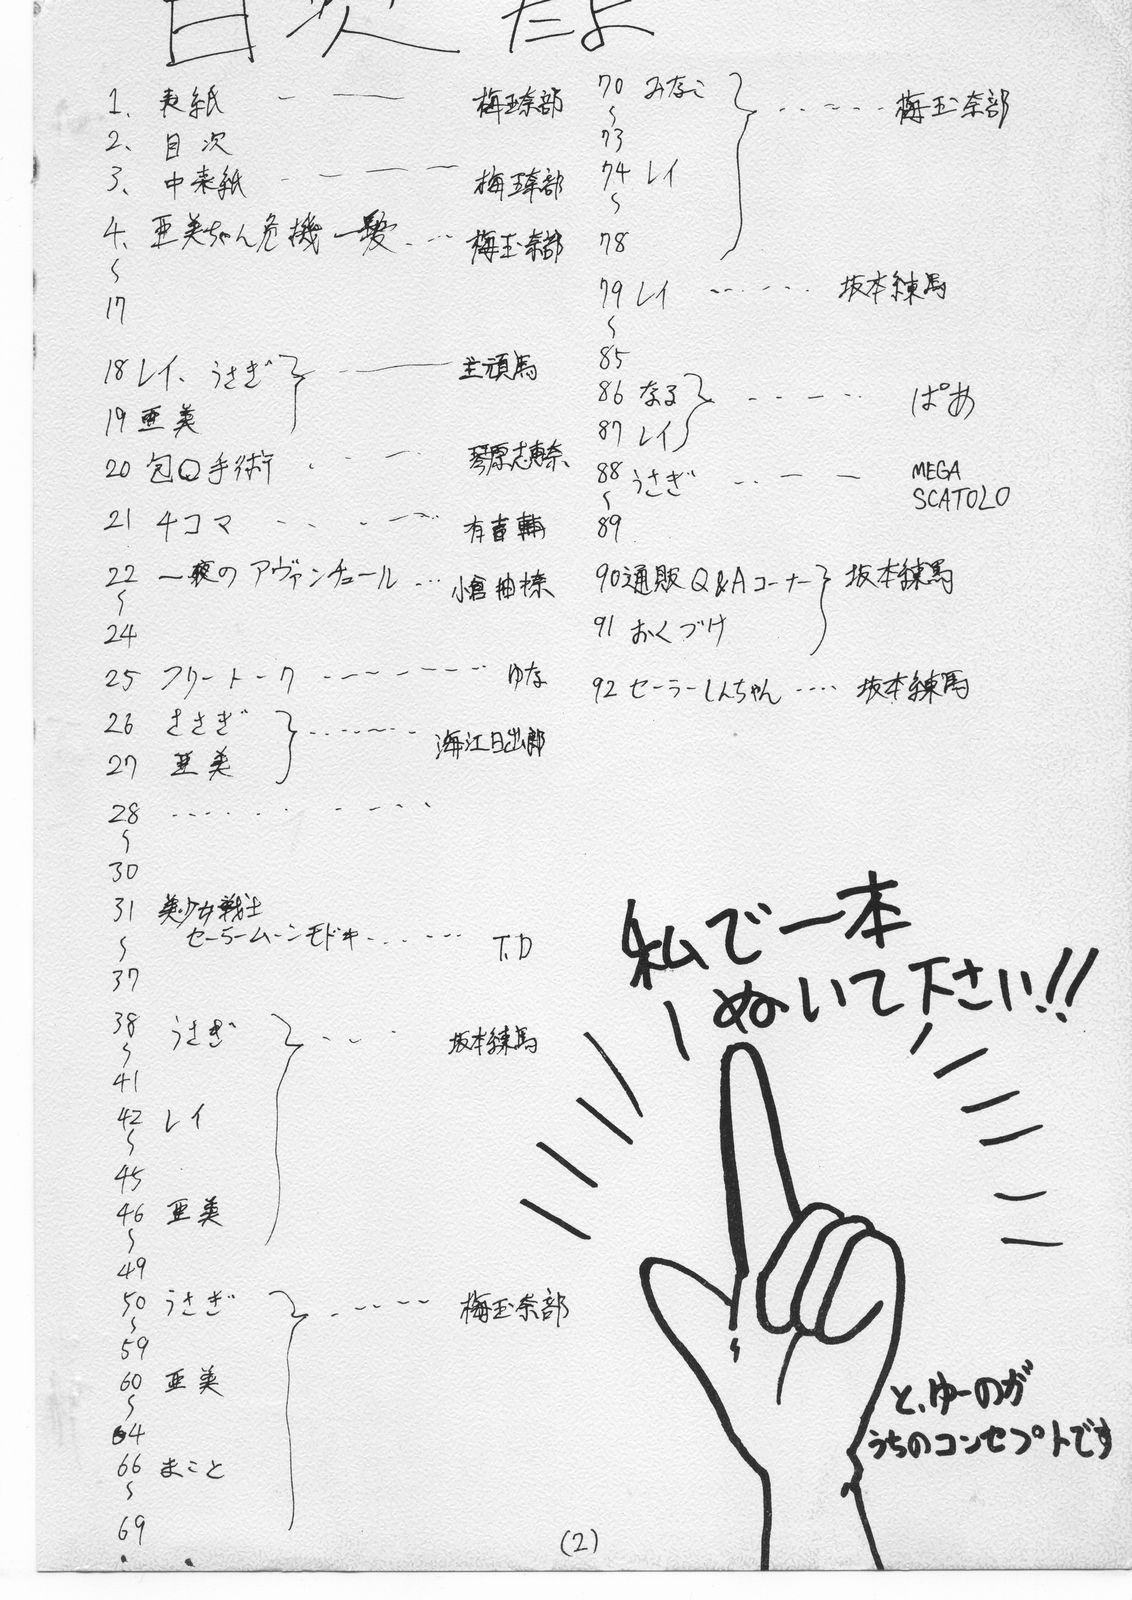 目次だよ
1. 表紙 梅玉奈部
2. 目次
3. 中表紙 梅玉奈部
4. 亜美ちゃん危機一髪 梅玉奈部
〜
17
18 レイ、うさぎ 主頑馬
19 亜美
20 包Q手術 琴原志恵奈
21 4コマ
22 一夜のアヴァンチュール 小倉柚榛
〜
24
25 フリートーク ゆな
26 うさぎ 海江日出郎
27 亜美
28
〜
30
31 美少女戦士
〜 セーラームーンモドキ T.D
37
38 うさぎ 坂本練馬
〜
41
42 レイ
〜
45
46 亜美
〜
49
50 うさぎ 梅玉奈部
〜
59
60 亜美
〜
64
66 まこと
〜
69
70 みなこ 梅玉奈部
〜
73
74 レイ
〜
78
79 レイ 坂本練馬
〜
85
86 なる ぱあ
87 レイ
88 うさぎ MEGA
〜 SCATOLO
89
90 通販Q&Aコーナー 坂本練馬
91 おくづけ
92 セーラーしんちゃん 坂本練馬
私で一本
ぬいて下さい!!
と、ゆーのが
うちのコンセプトです
(2)